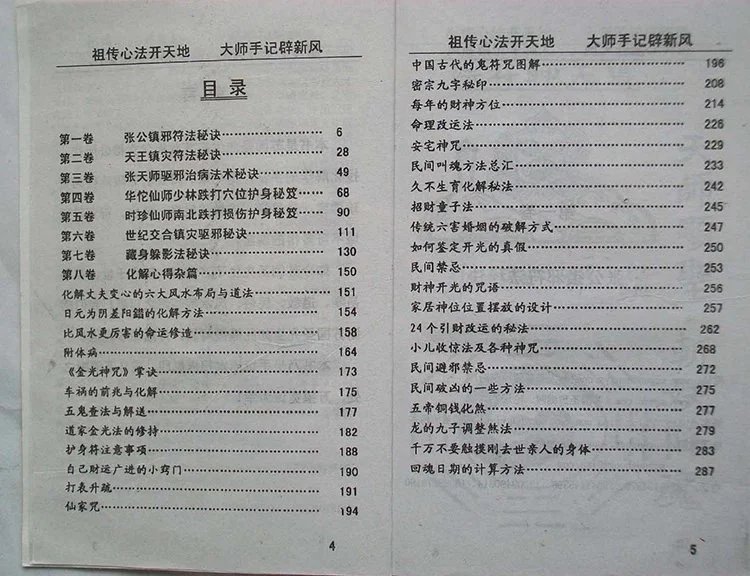 祖传心法开天地 大师手记辟新风
目录
第一卷 张公镇邪符法秘诀 6
第二卷 天王镇灾符法秘诀 28
第三卷 张天师驱邪治病法术秘诀 49
第四卷 华佗仙师少林跌打穴位护身秘笈 68
第五卷 时珍仙师南北跌打损伤护身秘笈 90
第六卷 世纪交合镇灾驱邪秘诀 111
第七卷 藏身躲影法秘诀 130
第八卷 化解心得杂篇 150
化解丈夫变心的六大风水布局与道法 151
日元为阴差阳錯的化解方法 154
比风水更厉害的命运修造 158
附体病 164
《金光神咒》掌诀 173
车祸的前兆与化解 175
五鬼查法与解送 177
道家金光法的修持 182
护身符注意事项 188
自己财运广进的小窍门 190
打表升疏 191
仙家咒 194
4
祖传心法开天地 大师手记辟新风
中国古代的鬼符咒图解 196
密宗九字秘印 208
每年的财神方位 214
命理改运法 226
安宅神咒 229
民间叫魂方法总汇 233
久不生育化解秘法 242
招财童子法 245
传统六害婚姻的破解方式 247
如何鉴定开光的真假 250
民间禁忌 253
财神开光的咒语 256
家居神位位置摆放的设计 257
24个引财改运的秘法 262
小儿收惊法及各种神咒 268
民间避邪禁忌 272
民间破凶的一些方法 275
五帝铜钱化煞 277
龙的九子调整煞法 279
千万不要触摸刚去世亲人的身体 283
回魂日期的计算方法 287
5